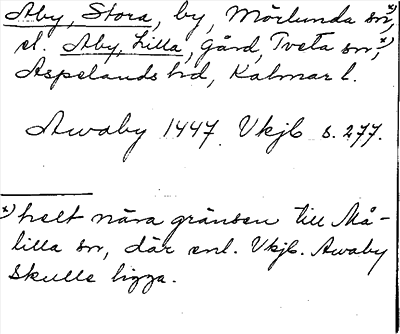 Åby, Stora, by, Mörlunda sn, x)
el. Åby, Lilla, gård, Tveta sn, x)
Aspelands hd, Kalmar l.
Awaby 1447 Vkjb s. 277.
x) helt nära gränsen till Må-
lilla sn, där enl. Vkjb. Awaby
skulle ligga.